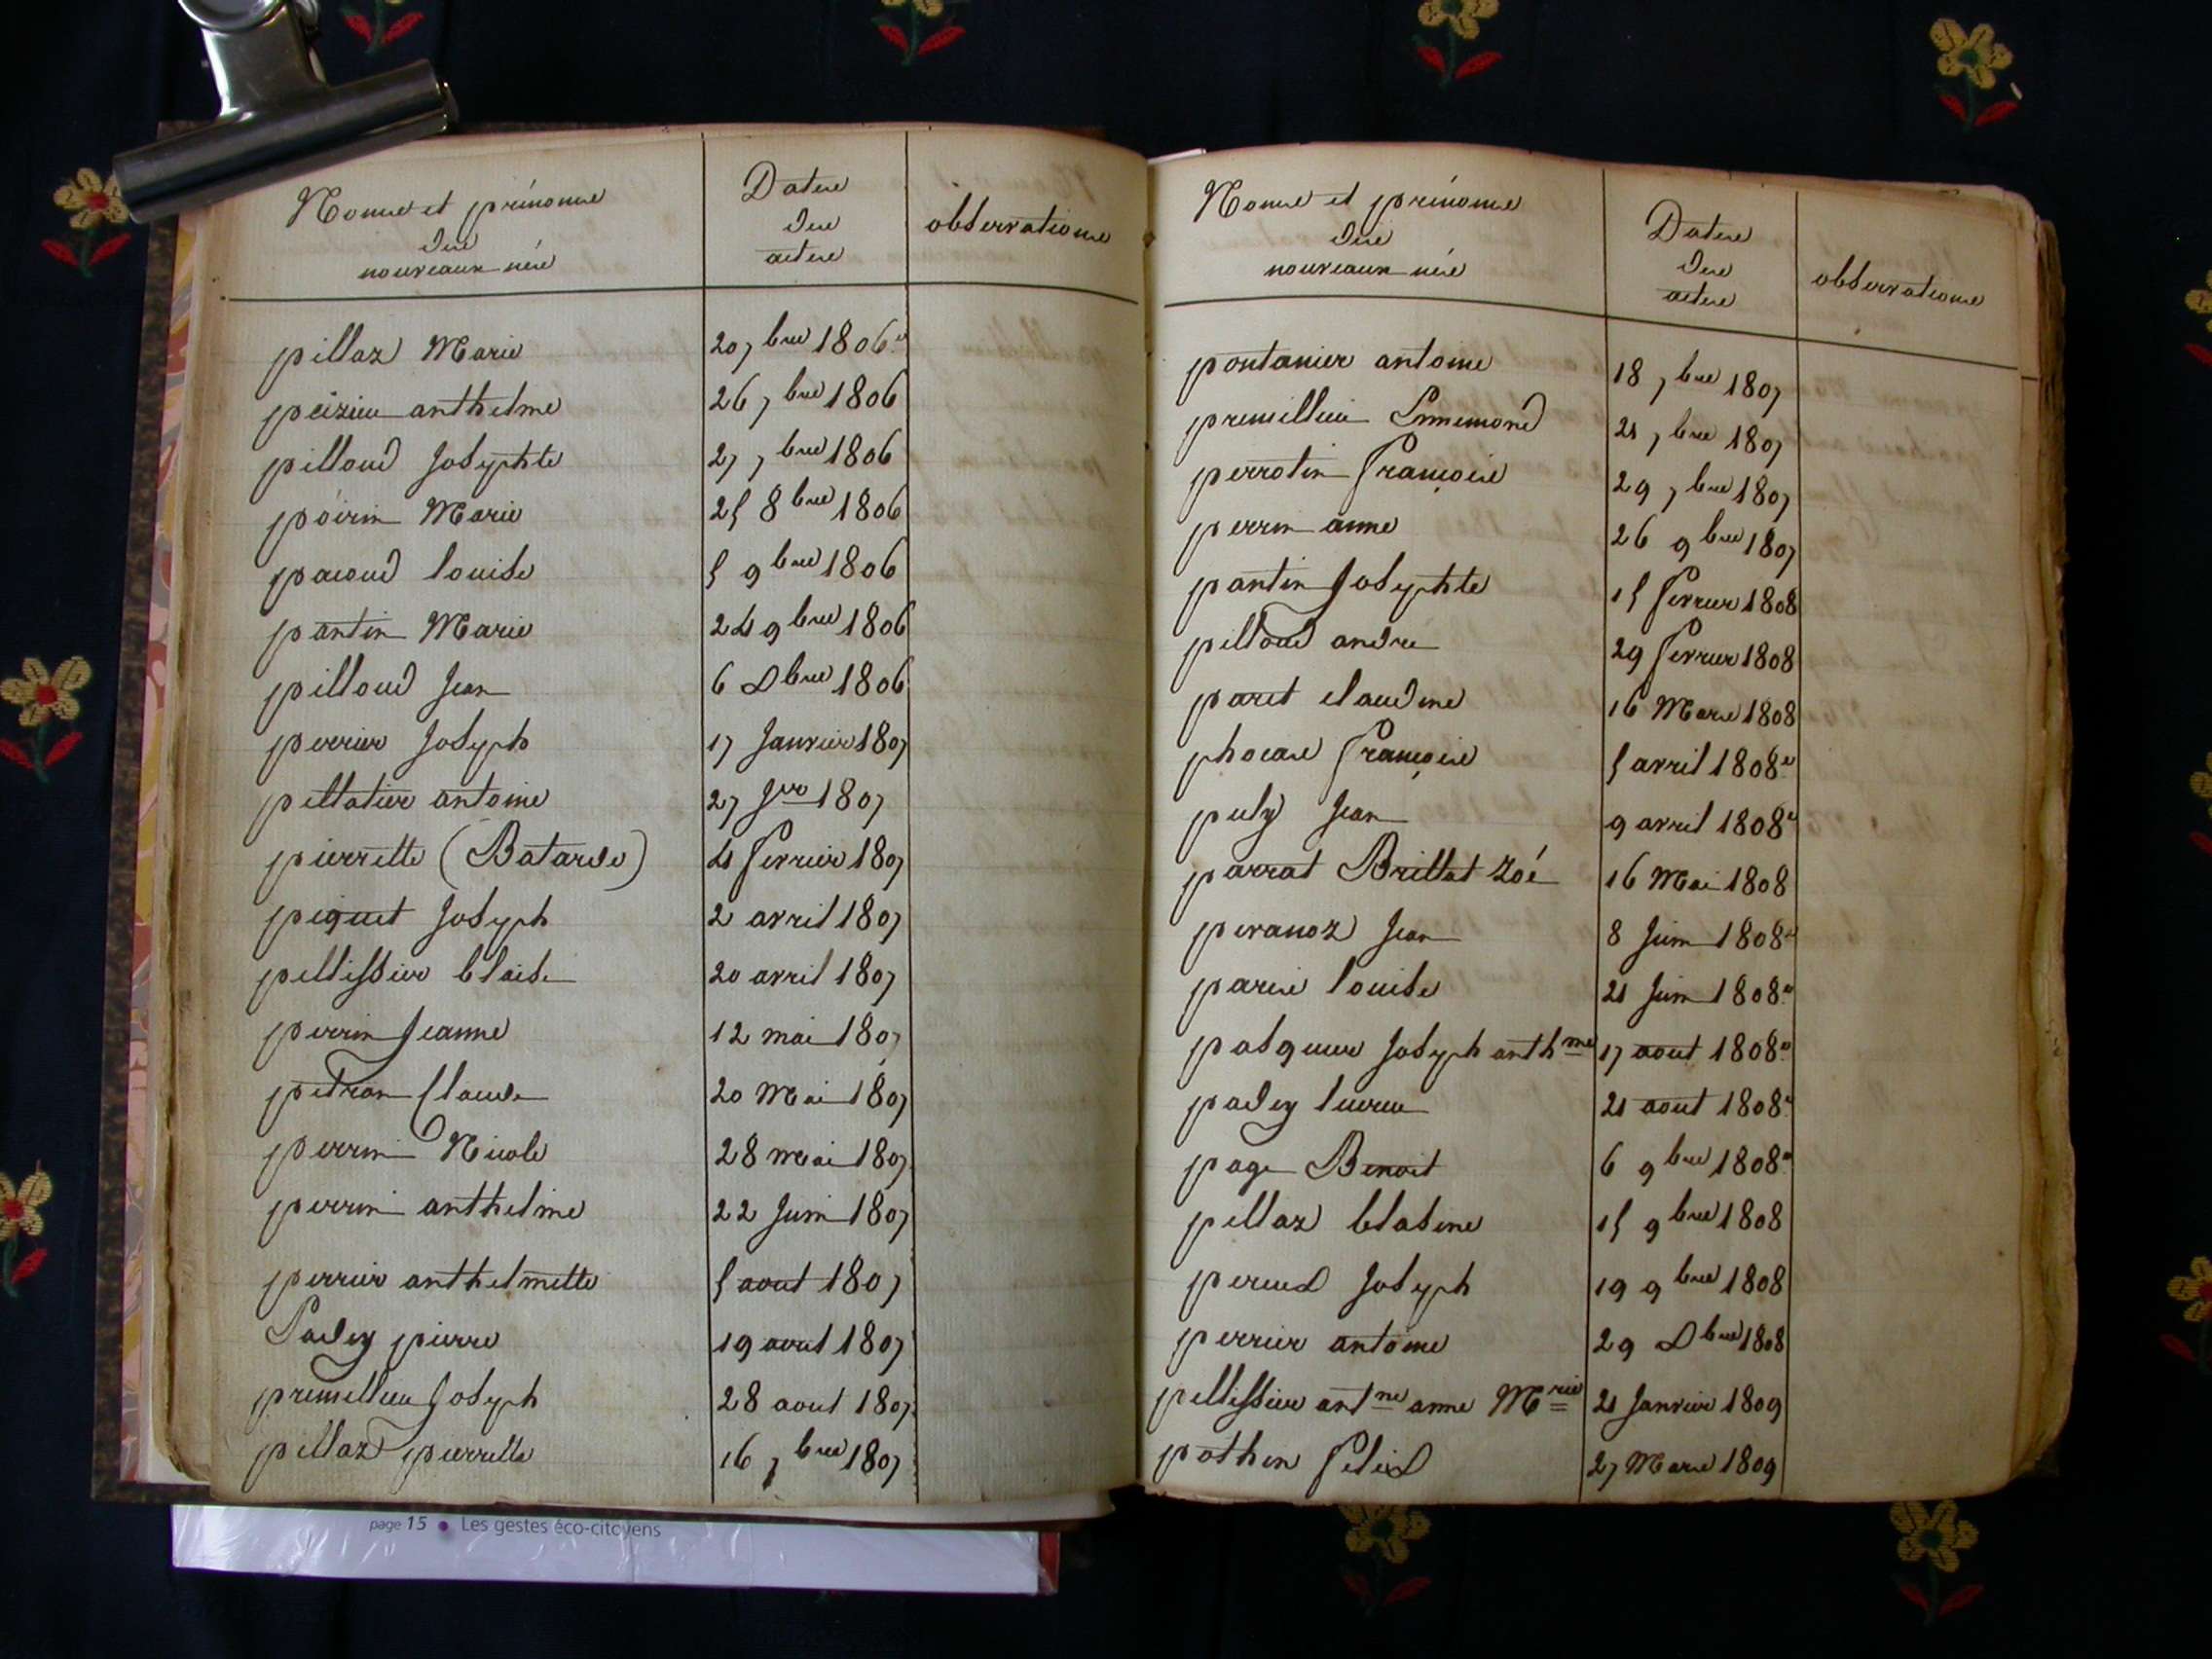 Noms et prénoms
des
nouveaux nés
Dates
des
actes
observations
pillaz Marie 20 7bre 1806
peizieu anthelme 26 7bre 1806
pilloud Josephte 27 7bre 1806
poirin Marie 25 8bre 1806
pacoud louise 5 9bre 1806
pantin Marie 24 9bre 1806
pilloud Jean 6 Xbre 1806
perrier Joseph 17 Janvier 1807
pellatier antoine 27 Jer 1807
pierrette (Batarde) 4 fevrier 1807
piquet Joseph 2 avril 1807
pellissier blaise 20 avril 1807
perrin Jeanne 12 mai 1807
petran Claude 20 Mai 1807
perrin Nicole 28 mai 1807
perrin anthelme 22 Juin 1807
perrier anthelmette 5 aout 1807
Padey pierre 19 aout 1807
premillieu Joseph 28 aout 1807
pillaz pierrette 16 7bre 1807
page 15 • Les gestes éco-citoyens
Noms et prénoms
des
nouveaux nés
Dates
des
actes
observations
pontanier antoine 18 7bre 1807
premillieu Ennemond 21 7bre 1807
perrotin françoise 29 7bre 1807
perrin anne 26 9bre 1807
pantin Josephte 15 fevrier 1808
pilloud andré 29 fevrier 1808
paret claudine 16 Mars 1808
phocas françoise 5 avril 1808
puly Jean 9 avril 1808
parrat Brillat Zoé 16 Mai 1808
peranoz Jean 8 Juin 1808
paris louise 21 Juin 1808
pasquier Joseph anthme 17 aout 1808
padey 21 aout 1808
page Benoit 6 9bre 1808
pillaz blasine 15 9bre 1808
Joseph 19 9bre 1808
perrier antoine 29 Xbre 1808
pellissier antne anne Mrie 21 Janvier 1809
pothin felix 27 Mars 1809